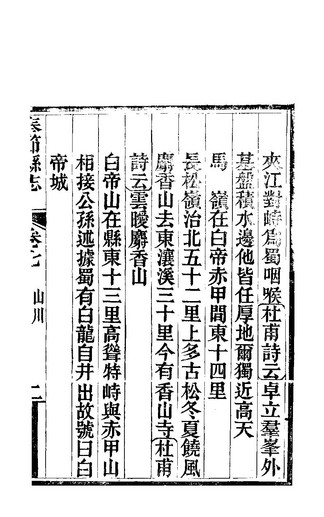 夾江對峙爲蜀咽喉杜甫詩云卓立羣峯外
蟠積水邊他皆任厚地爾獨近高天
馬嶺在白帝赤甲間東十四里
長松嶺治北五十二里上多古松冬夏饒風
麝香山去東瀼溪三十里今有香山寺杜甫
詩云雲曖麝香山
白帝山在縣東十三里高聳特峙與赤甲山
相接公孫述據蜀有白龍自井出故號曰白
帝城
奉節縣志 卷七 山川 二